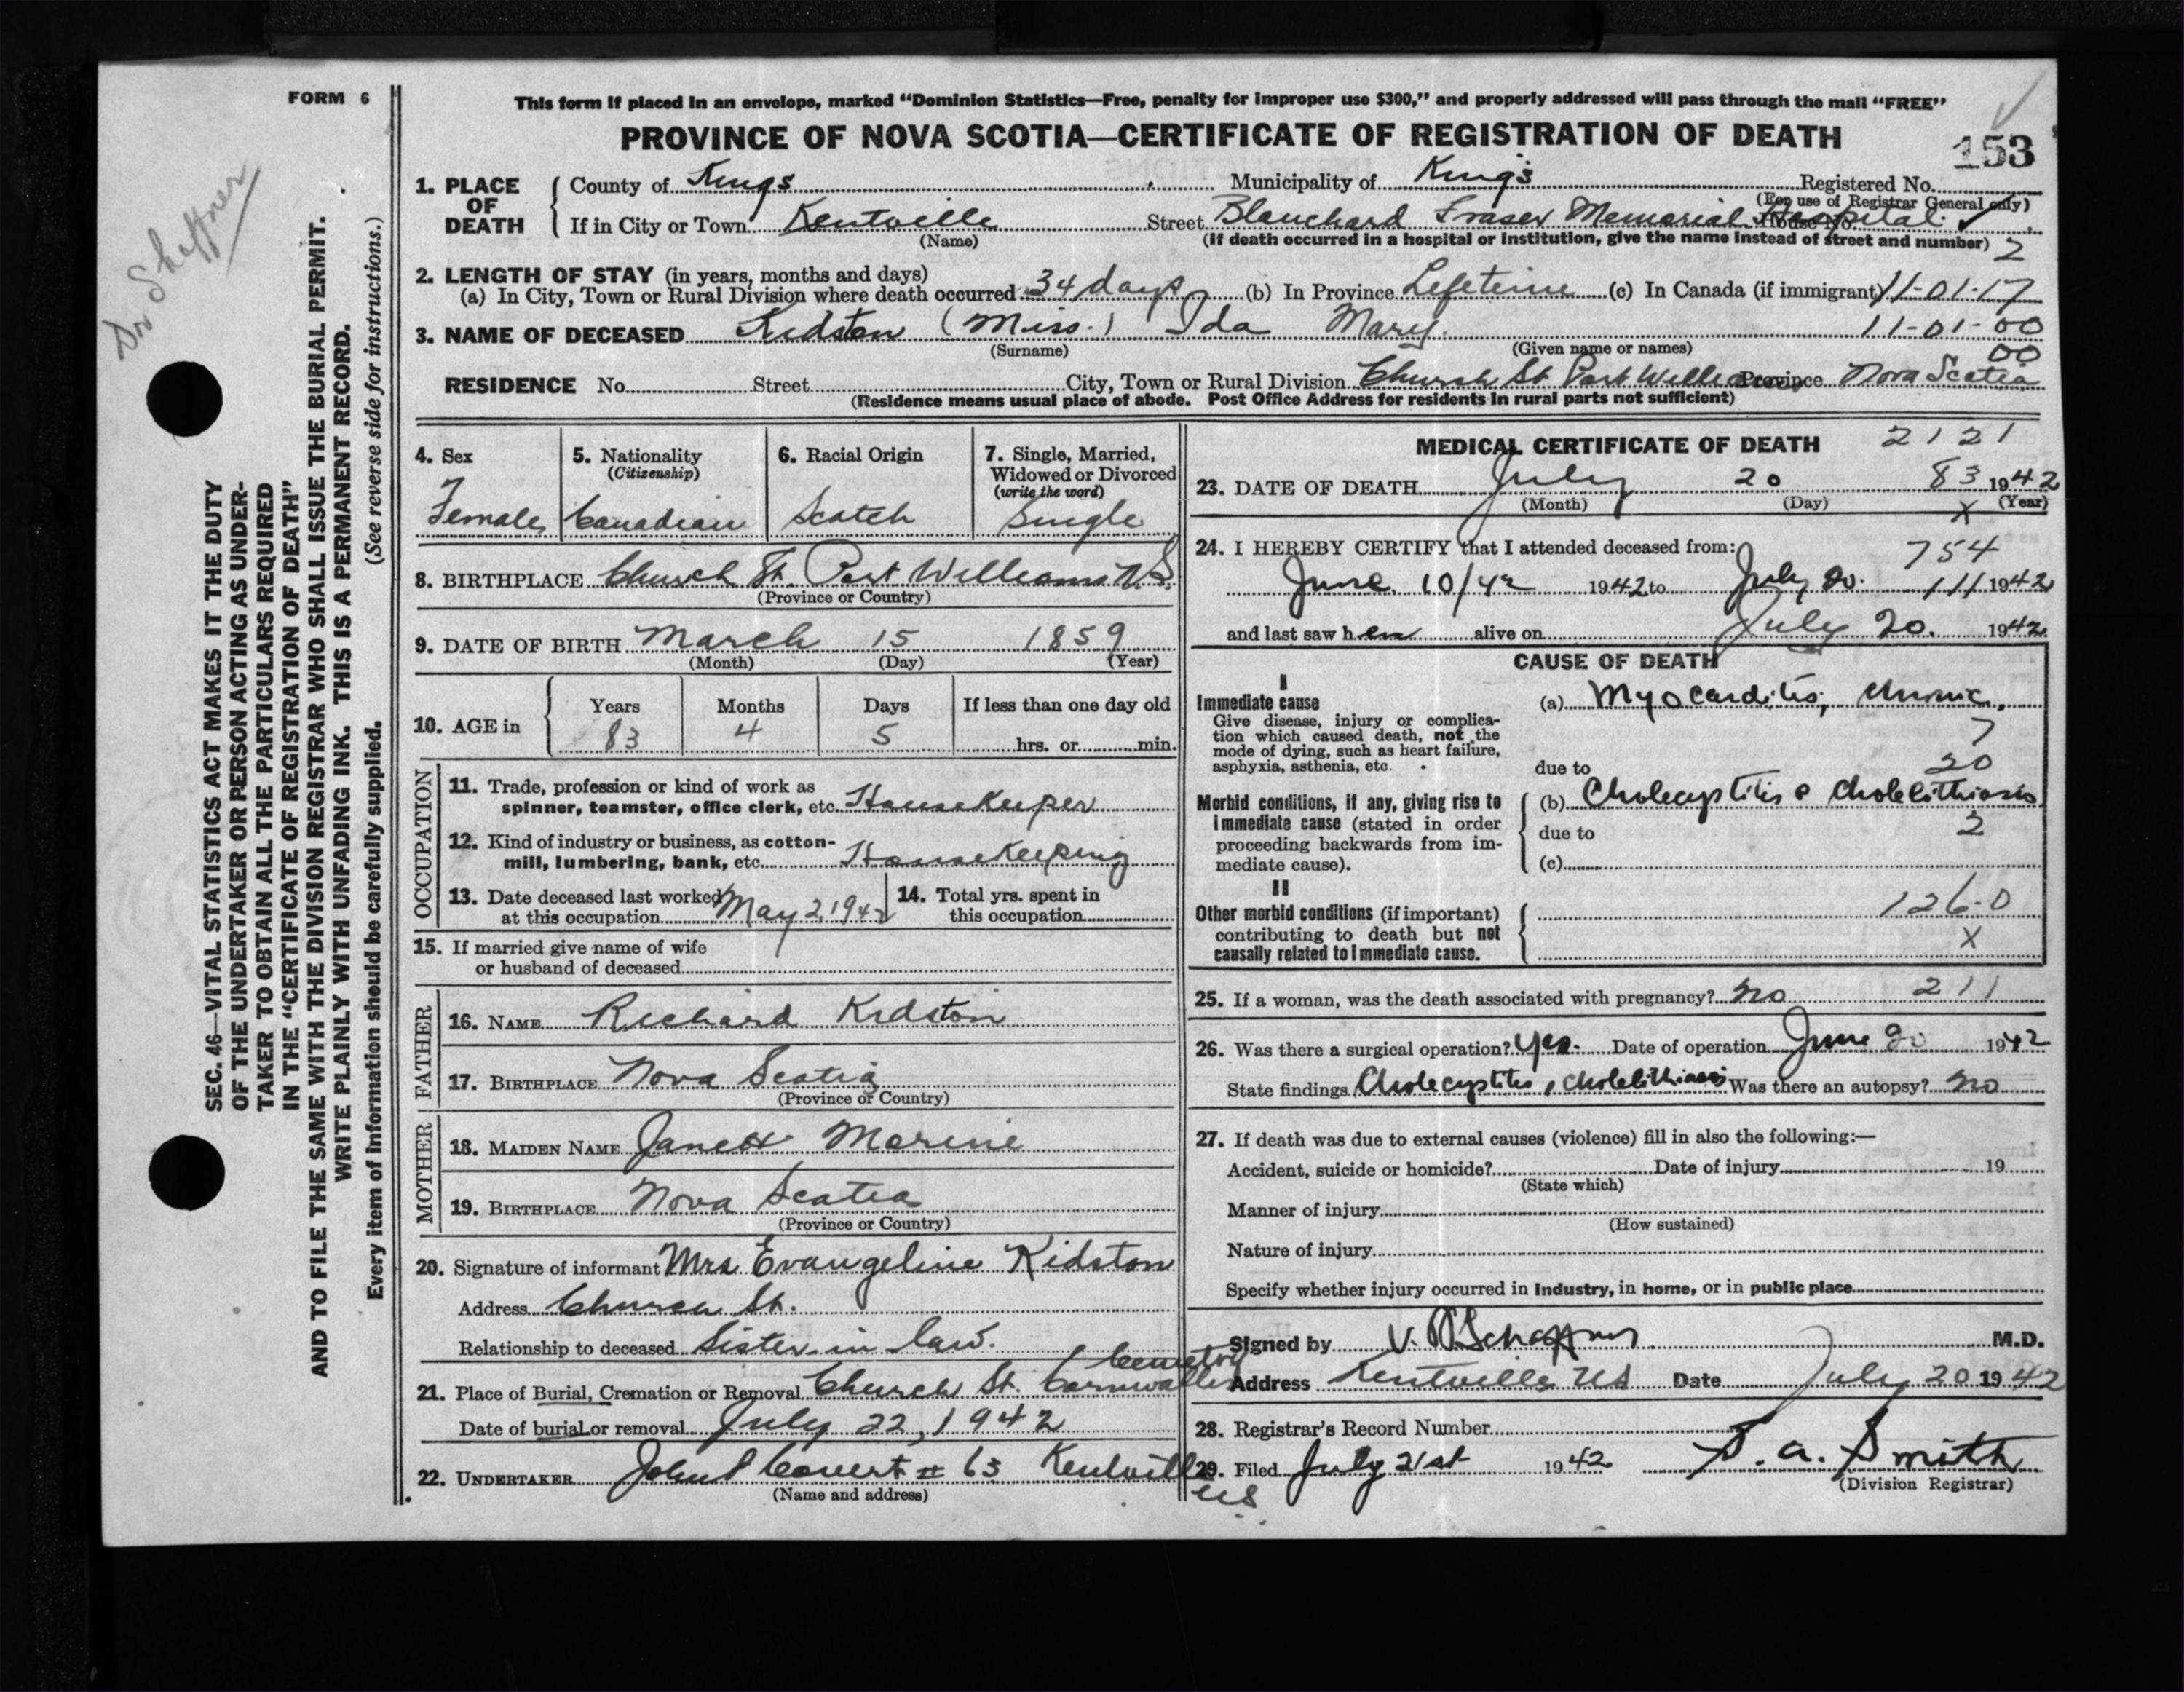 FORM 6
This form if placed in an envelope, marked “Dominion Statistics—Free, penalty for improper use $300,” and properly addressed will pass through the mail “FREE”
PROVINCE OF NOVA SCOTIA—CERTIFICATE OF REGISTRATION OF DEATH
153
1. PLACE OF DEATH County of Kings Municipality of King's Registered No.
(For use of Registrar General only)
If in City or Town Kentville Street Blanchard Fraser Memorial Hospital House No.
(Name) (If death occurred in a hospital or institution, give the name instead of street and number) 2
2. LENGTH OF STAY (in years, months and days)
(a) In City, Town or Rural Division where death occurred 34 days (b) In Province Lifetime (c) In Canada (if immigrant) 11-01-17
3. NAME OF DECEASED Kidston (Miss.) Ida Mary. 11-01-00
(Surname) (Given name or names) 00
RESIDENCE No. Street City, Town or Rural Division Church St Port Williams Province Nova Scotia
(Residence means usual place of abode. Post Office Address for residents in rural parts not sufficient)
4. Sex Female
5. Nationality (Citizenship) Canadian
6. Racial Origin Scotch
7. Single, Married, Widowed or Divorced (write the word) Single
8. BIRTHPLACE Church St. Port Williams N.S.
(Province or Country)
9. DATE OF BIRTH March 15 1859
(Month) (Day) (Year)
10. AGE in Years 83 Months 4 Days 5 If less than one day old hrs. or min.
OCCUPATION
11. Trade, profession or kind of work as
spinner, teamster, office clerk, etc. HouseKeeper
12. Kind of industry or business, as cotton-
mill, lumbering, bank, etc. HouseKeeping
13. Date deceased last worked at this occupation May 2, 1942
14. Total yrs. spent in this occupation
15. If married give name of wife
or husband of deceased
FATHER
16. NAME Richard Kidston
17. BIRTHPLACE Nova Scotia
(Province or Country)
MOTHER
18. MAIDEN NAME Janett
19. BIRTHPLACE Nova Scotia
(Province or Country)
20. Signature of informant Mrs Evangeline Kidston
Address Church St.
Relationship to deceased Sister in law.
21. Place of Burial, Cremation or Removal Church St. Cornwallis Cemetry
Date of burial or removal July 22, 1942
22. UNDERTAKER John Covert # 63 Kentville NS
(Name and address)
MEDICAL CERTIFICATE OF DEATH 2121
23. DATE OF DEATH July 20 83 1942
(Month) (Day) X (Year)
24. I HEREBY CERTIFY that I attended deceased from: 754
June 10/42 1942 to July 20. 111 1942
and last saw her alive on July 20. 1942
CAUSE OF DEATH
I
Immediate cause
Give disease, injury or complica-
tion which caused death, not the
mode of dying, such as heart failure,
asphyxia, asthenia, etc.
(a) Myocarditis, chronic.
7
due to 20
Morbid conditions, if any, giving rise to
immediate cause (stated in order
proceeding backwards from im-
mediate cause).
(b) Cholecystitis & Cholelithiasis
due to 2
(c)
II
Other morbid conditions (if important)
contributing to death but not
causally related to immediate cause.
126-0
X
25. If a woman, was the death associated with pregnancy? no 211
26. Was there a surgical operation? yes. Date of operation June 20 1942
State findings Cholecystitis, cholelithiasis Was there an autopsy? no
27. If death was due to external causes (violence) fill in also the following:—
Accident, suicide or homicide? Date of injury 19
(State which)
Manner of injury
(How sustained)
Nature of injury
Specify whether injury occurred in Industry, in home, or in public place
Signed by V. D. Schaffner M.D.
Address Kentville NS Date July 20 1942
28. Registrar's Record Number
29. Filed July 21st 1942 S. a. Smith
(Division Registrar)
Dr Shaffner
SEC. 46—VITAL STATISTICS ACT MAKES IT THE DUTY
OF THE UNDERTAKER OR PERSON ACTING AS UNDER-
TAKER TO OBTAIN ALL THE PARTICULARS REQUIRED
IN THE “CERTIFICATE OF REGISTRATION OF DEATH”
AND TO FILE THE SAME WITH THE DIVISION REGISTRAR WHO SHALL ISSUE THE BURIAL PERMIT.
WRITE PLAINLY WITH UNFADING INK. THIS IS A PERMANENT RECORD.
Every item of information should be carefully supplied. (See reverse side for instructions.)